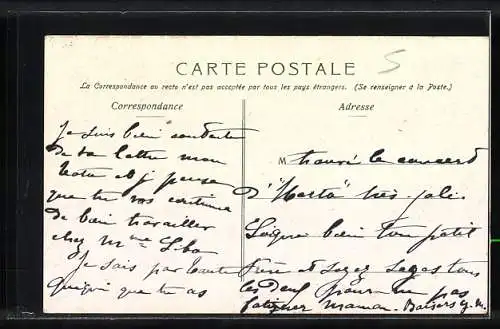 5
CARTE POSTALE
La Correspondance au recto n'est pas acceptée par tous les pays étrangers. (Se renseigner à la Poste.)
Correspondance
Adresse
Je suis bien contente
de ta lettre mon
et je pense
que tu vas continuer
de bien travailler
chez Mme
Je sais par tante
que tu as
M trouvé le concert
d' très joli.
Soigne bien ton petit
frère et soyez sages tous
les deux pour ne pas
fatiguer maman. Baisers